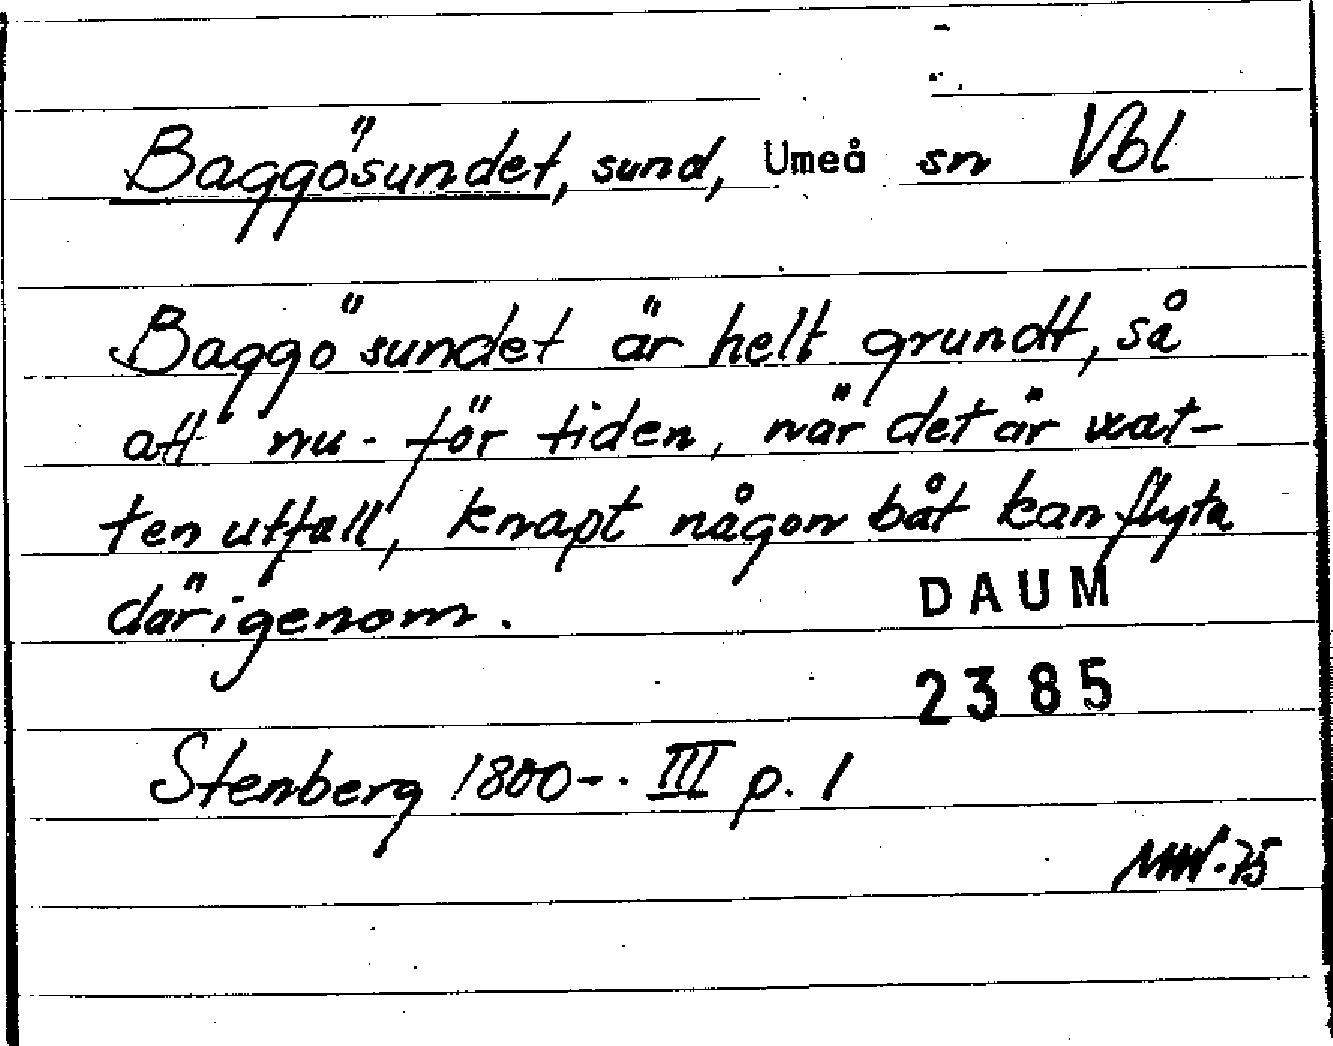 Baggösundet, sund, Umeå sn Vbl
Baggösundet är helt grundt, så
att nu-för tiden, när det är vat-
ten utfall, knapt någon båt kan flyta
därigenom.
DAUM
2385
Stenberg 1800-. III p. 1